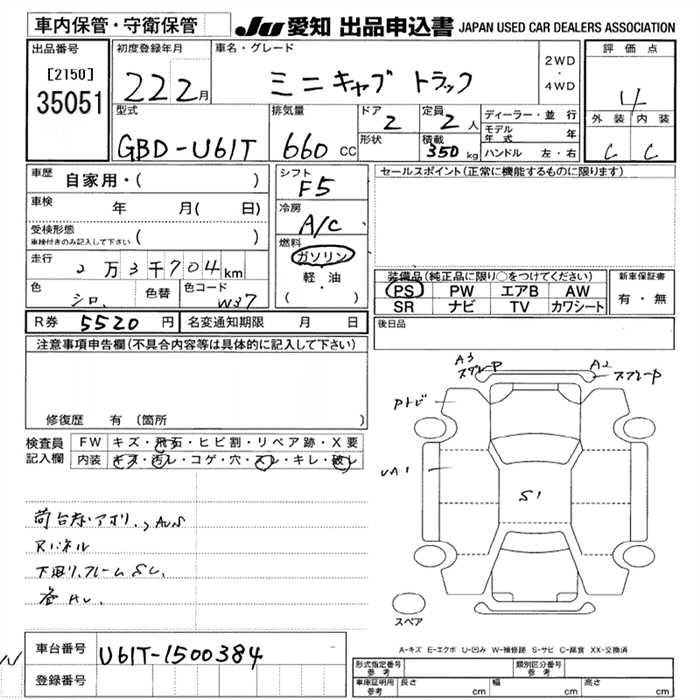 車内保管・守衛保管
JU 愛知 出品申込書 JAPAN USED CAR DEALERS ASSOCIATION
出品番号
[2150]
35051
初度登録年月
22 2月
車名・グレード
ミニキャブ トラック
2WD
・
4WD
評価点
4
外装 内装
C C
型式
GBD-U61T
排気量
660 cc
ドア
2
形状
定員
2人
積載
350 kg
ディーラー・並行
モデル年式 年
ハンドル 左・右
車歴
自家用・( )
車検
年 月( 日)
受検形態
車検付きのみ記入して下さい ( )
走行
2万3千704km
色
シロ
色替
色コード
W37
シフト
F5
冷房
A/C
燃料
ガソリン
軽・油
( ・ )
セールスポイント(正常に機能するものに限ります)
装備品(純正品に限り○をつけてください)
PS PW エアB AW
SR ナビ TV カワシート
新車保証書
有・無
R券 5520円
名変通知期限 月 日
後日品
注意事項申告欄(不具合内容等は具体的に記入して下さい)
修復歴 有 (箇所 )
検査員
記入欄
FW キズ・飛石・ヒビ割・リペア跡・X要
内装 キズ・汚レ・コゲ・穴・スレ・キレ・破レ
A3
スプレーP
A2
スプレーP
Pトビ
UA1
S1
スペア
Rパネル
A-キズ E-エクボ U-凹み W-補修跡 S-サビ C-腐食 XX-交換済
車台番号 U61T-1500384
登録番号
形式指定番号
参考
類別区分番号
参考
車庫証明用
参考
長さ cm 幅 cm 高さ cm